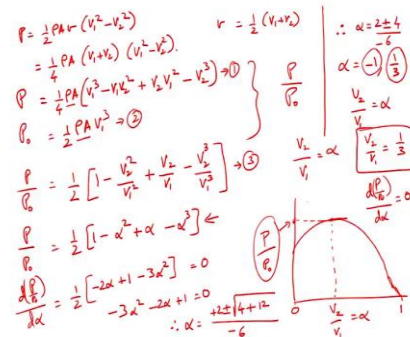 P = 1/2 ρAv (V₁² - V₂²)
= 1/4 ρA (V₁+V₂) (V₁² - V₂²).
P = 1/4 ρA (V₁³ - V₁V₂² + V₂V₁² - V₂³) → ①
P₀ = 1/2 ρA V₁³ → ②
P/P₀ = 1/2 [1 - V₂²/V₁² + V₂/V₁ - V₂³/V₁³] → ③
P/P₀ = 1/2 [1 - α² + α - α³] ←
d(P/P₀)/dα = 1/2 [-2α + 1 - 3α²] = 0
-3α² - 2α + 1 = 0
∴ α = +2 ± √4 + 12 / -6
v = 1/2 (V₁+V₂)
P/P₀
V₂/V₁ = α
∴ α = 2 ± 4 / -6
α = -1, 1/3
V₂/V₁ = α
V₂/V₁ = 1/3
d(P/P₀)/dα = 0
P/P₀
0
V₂/V₁ = α
1